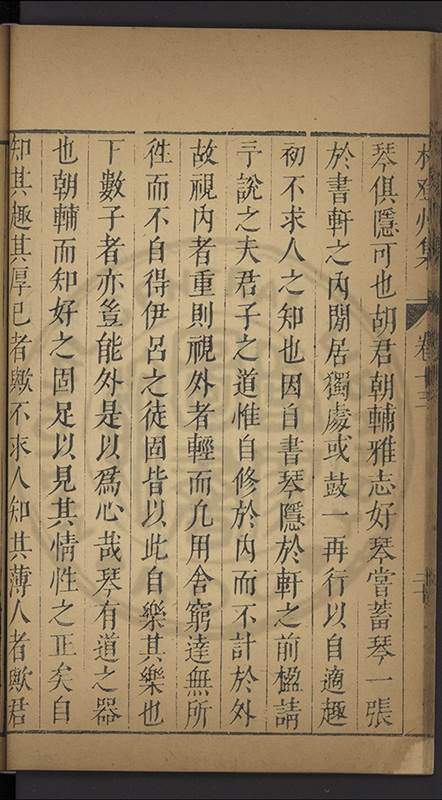 集 卷十三
琴俱隱可也胡君朝輔雅志好琴嘗蓄琴一張
於書軒之內閒居獨處或鼓一再行以自適趣
初不求人之知也因自書琴隱於軒之前楹請
予說之夫君子之道惟自修於內而不計於外
故視內者重則視外者輕而凢用舍窮達無所
徃而不自得伊呂之徒固皆以此自樂其樂也
下數子者亦豈能外是以爲心哉琴有道之器
也朝輔而知好之固足以見其情性之正矣自
知其趣其厚已者歟不求人知其薄人者歟君